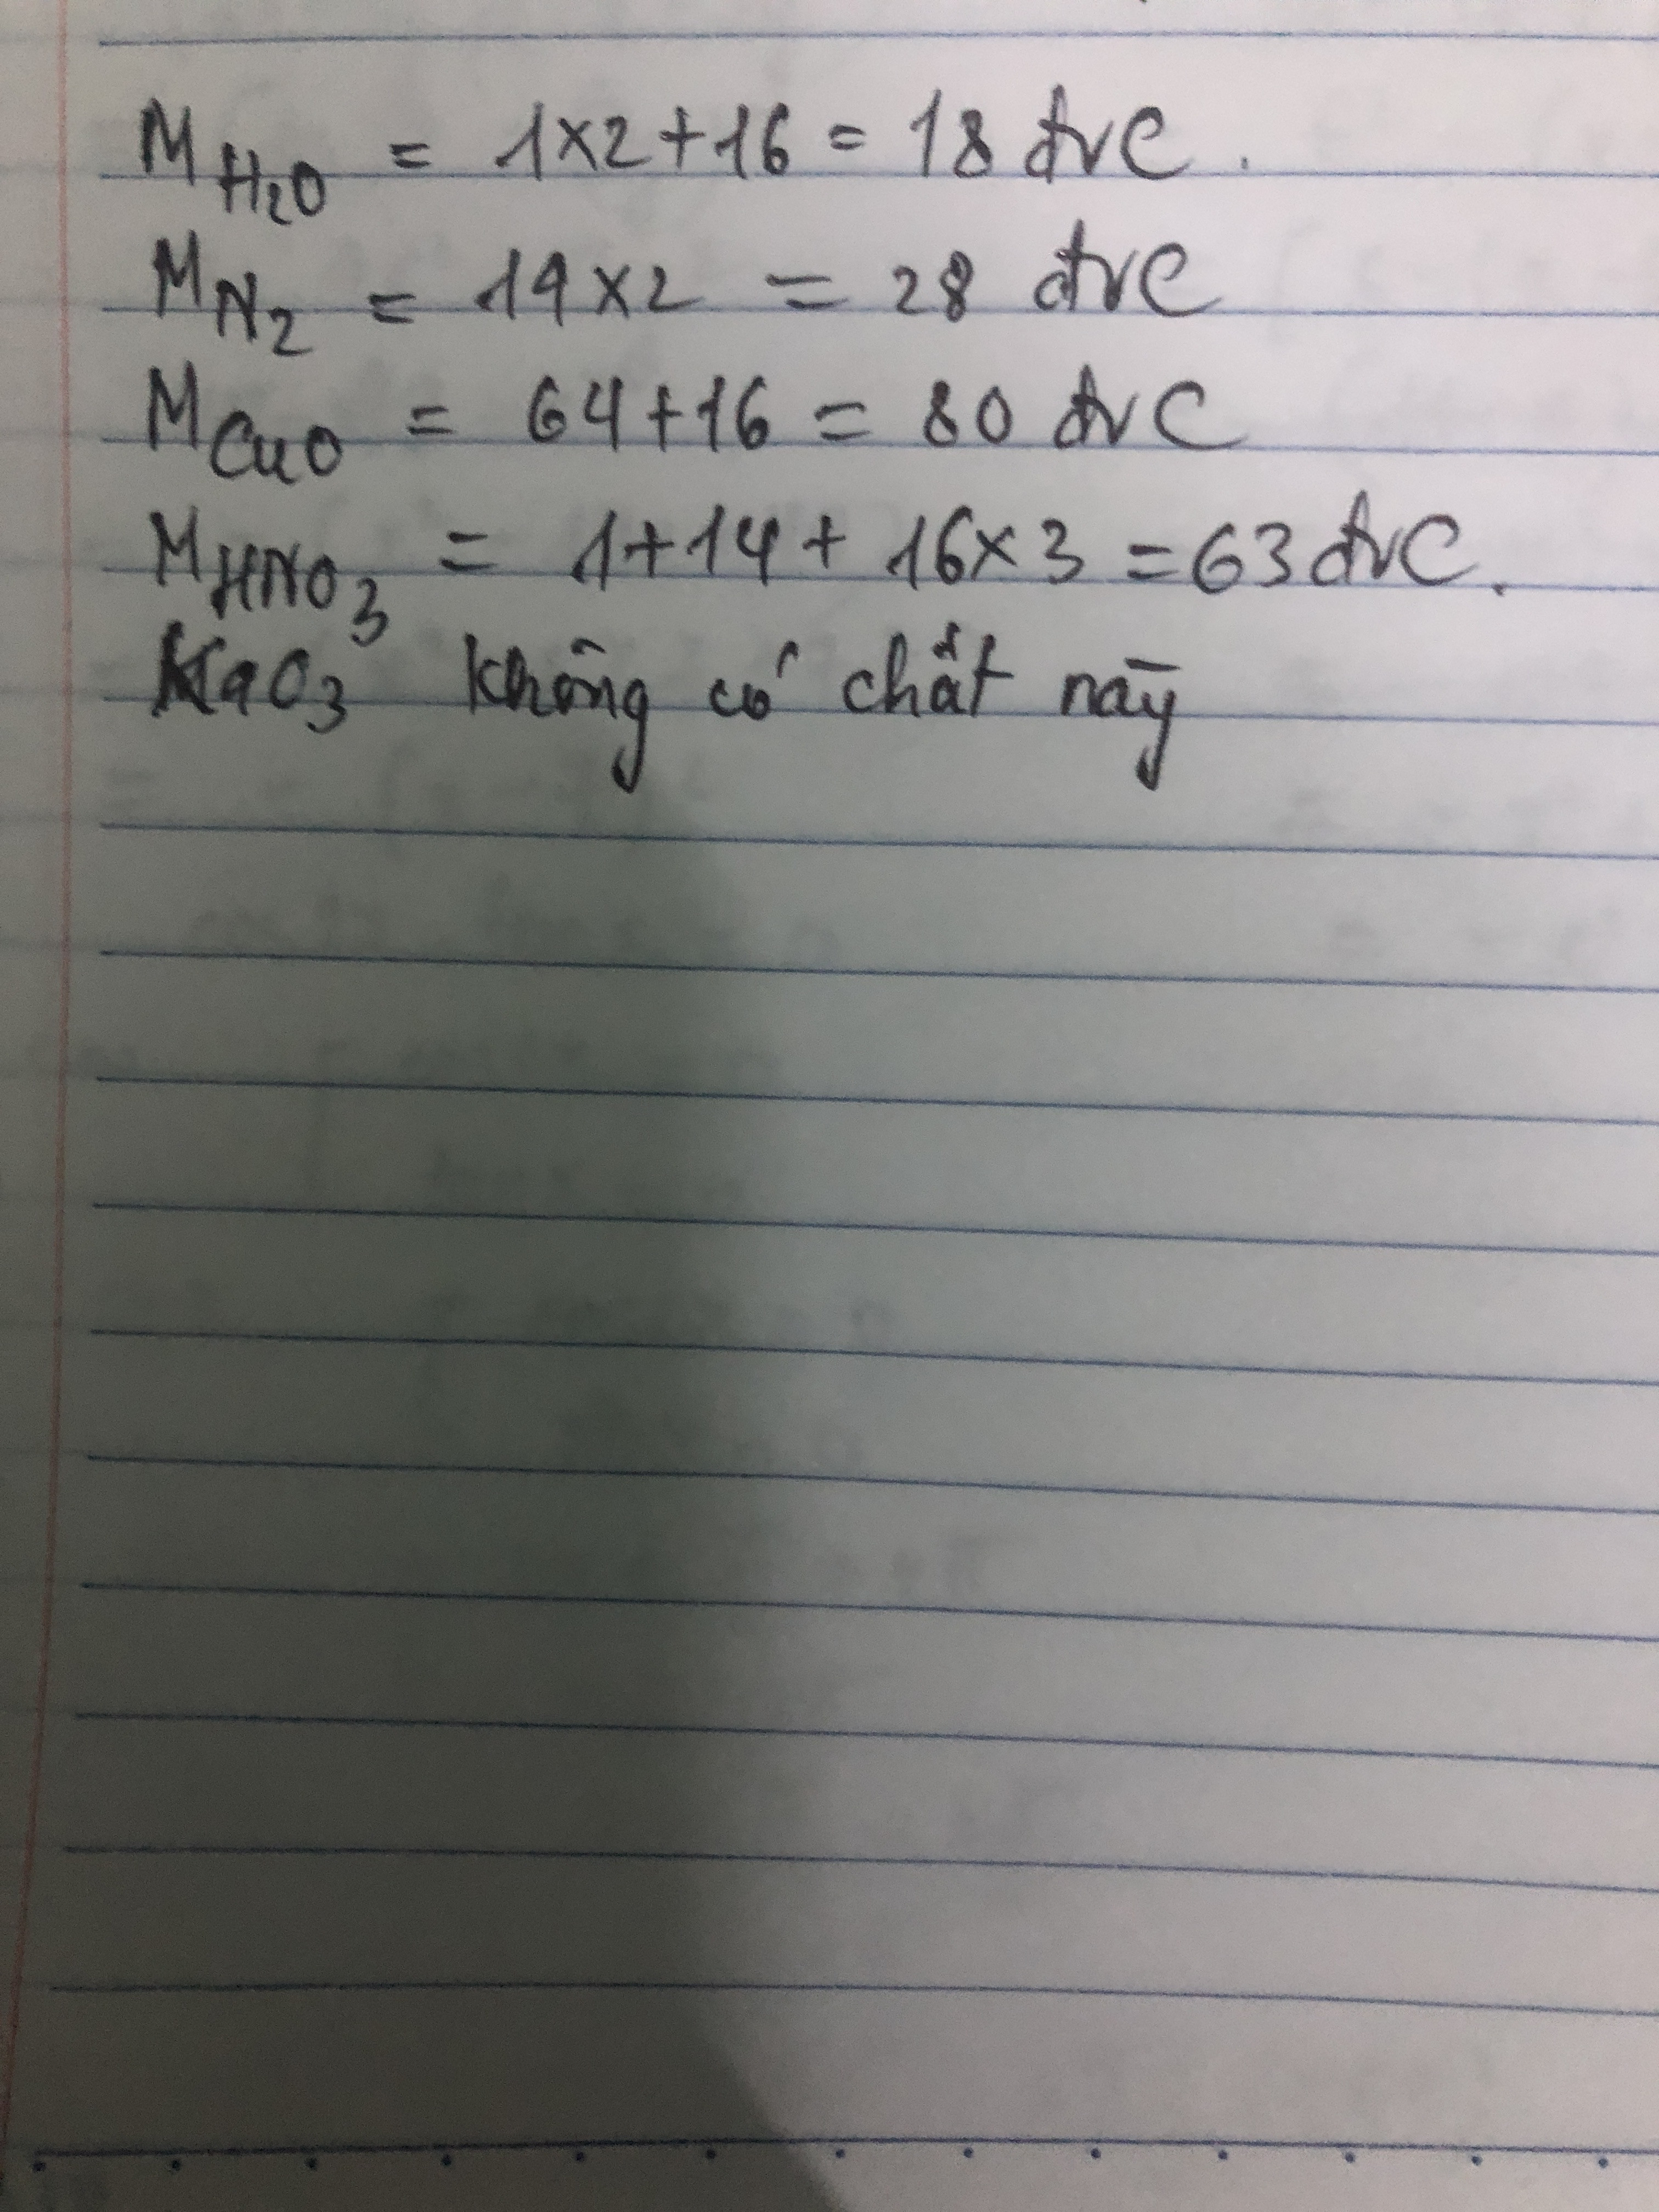 M H₂O = 1×2+16 = 18 đvC.
M N₂ = 14×2 = 28 đvC
M CuO = 64+16 = 80 đvC
M HNO₃ = 1+14+16×3 = 63 đvC.
KaO₃ không có chất này